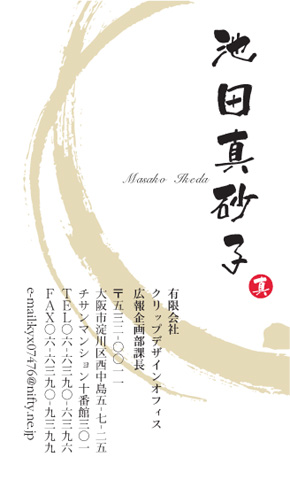 池田真砂子
Masako Ikeda
真
有限会社
クリップデザインオフィス
広報企画部課長
〒五三二-〇〇一一
大阪市淀川区西中島五-七-二五
チサンマンション十番館三〇一
TEL〇六-六三九〇-六三九六
FAX〇六-六三九〇-九三九九
e-mail:kyx07476@nifty.ne.jp